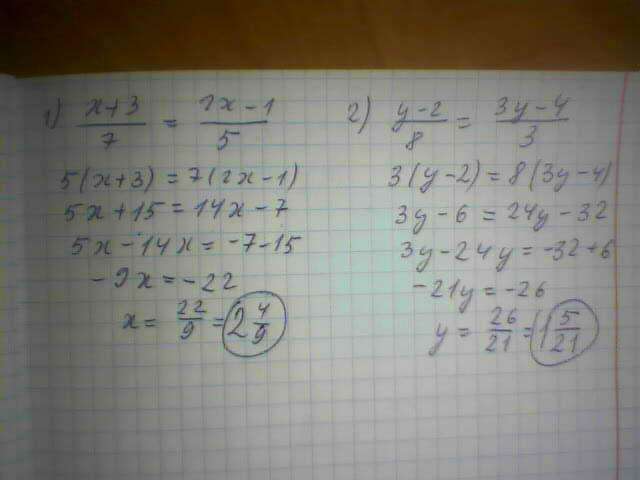 1) x+3/7 = 2x-1/5
5(x+3) = 7(2x-1)
5x+15 = 14x-7
5x-14x = -7-15
-9x = -22
x = 22/9 = 2 4/9
2) y-2/8 = 3y-4/3
3(y-2) = 8(3y-4)
3y-6 = 24y-32
3y-24y = -32+6
-21y = -26
y = 26/21 = 1 5/21